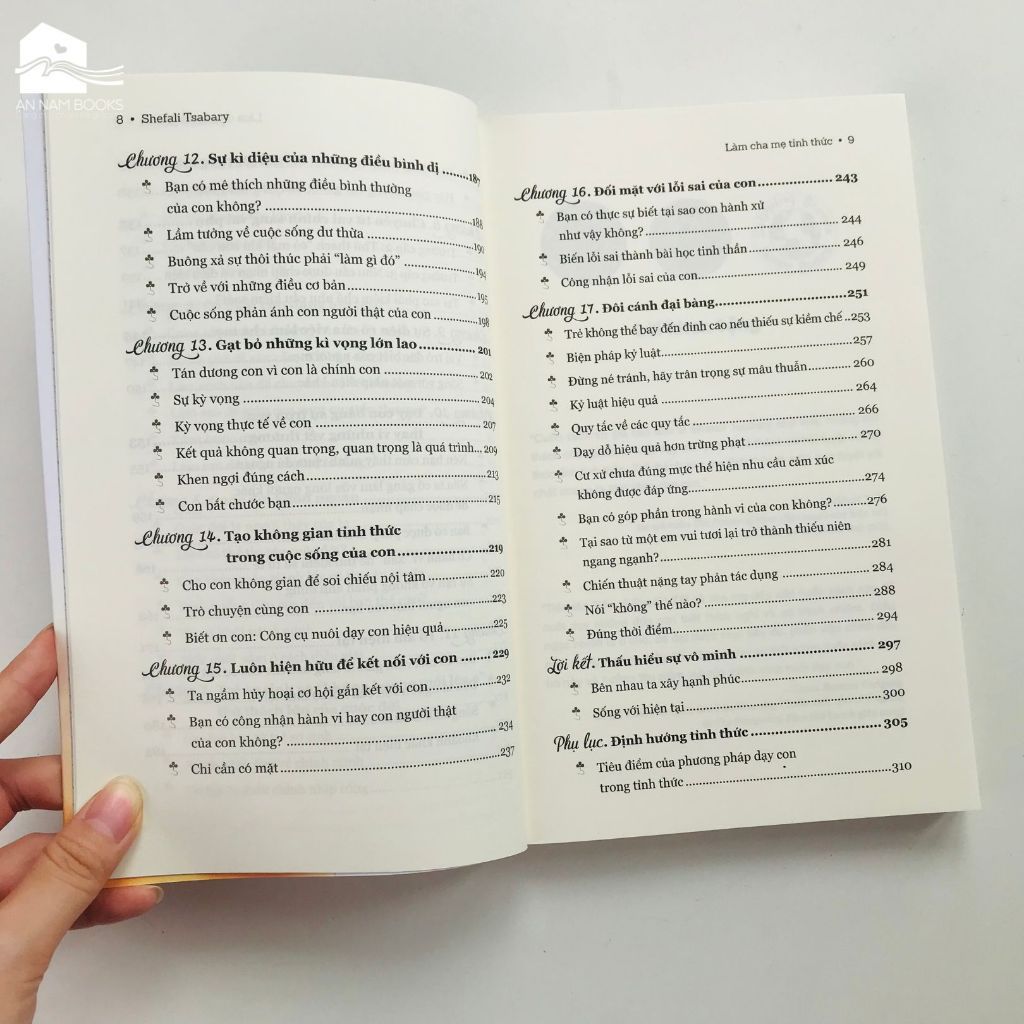 AN NAM BOOKS
8 • Shefali Tsabary
Chương 12. Sự kì diệu của những điều bình dị ........187
Bạn có mê thích những điều bình thường
của con không? ........188
Lầm tưởng về cuộc sống dư thừa ........190
Buông xả sự thôi thúc phải “làm gì đó” ........194
Trở về với những điều cơ bản ........195
Cuộc sống phản ánh con người thật của con ........198
Chương 13. Gạt bỏ những kì vọng lớn lao ........201
Tán dương con vì con là chính con ........202
Sự kỳ vọng ........204
Kỳ vọng thực tế về con ........207
Kết quả không quan trọng, quan trọng là quá trình...209
Khen ngợi đúng cách ........213
Con bắt chước bạn ........215
Chương 14. Tạo không gian tỉnh thức
trong cuộc sống của con ........219
Cho con không gian để soi chiếu nội tâm ........220
Trò chuyện cùng con ........223
Biết ơn con: Công cụ nuôi dạy con hiệu quả ........225
Chương 15. Luôn hiện hữu để kết nối với con ........229
Ta ngầm hủy hoại cơ hội gắn kết với con ........232
Bạn có công nhận hành vi hay con người thật
của con không? ........234
Chỉ cần có mặt ........237
Làm cha mẹ tỉnh thức • 9
Chương 16. Đối mặt với lỗi sai của con ........243
Bạn có thực sự biết tại sao con hành xử
như vậy không? ........244
Biến lỗi sai thành bài học tinh thần ........246
Công nhận lỗi sai của con ........249
Chương 17. Đôi cánh đại bàng ........251
Trẻ không thể bay đến đỉnh cao nếu thiếu sự kiềm chế ..253
Biện pháp kỷ luật ........257
Đừng né tránh, hãy trân trọng sự mâu thuẫn ........260
Kỷ luật hiệu quả ........264
Quy tắc về các quy tắc ........266
Dạy dỗ hiệu quả hơn trừng phạt ........270
Cư xử chưa đúng mực thể hiện nhu cầu cảm xúc
không được đáp ứng ........274
Bạn có góp phần trong hành vi của con không? ........276
Tại sao từ một em vui tươi lại trở thành thiếu niên
ngang ngạnh? ........281
Chiến thuật nặng tay phản tác dụng ........284
Nói “không” thế nào? ........288
Đúng thời điểm ........294
Lời kết. Thấu hiểu sự vô minh ........297
Bên nhau ta xây hạnh phúc ........298
Sống với hiện tại ........300
Phụ lục. Định hướng tỉnh thức ........305
Tiêu điểm của phương pháp dạy con
trong tỉnh thức ........310